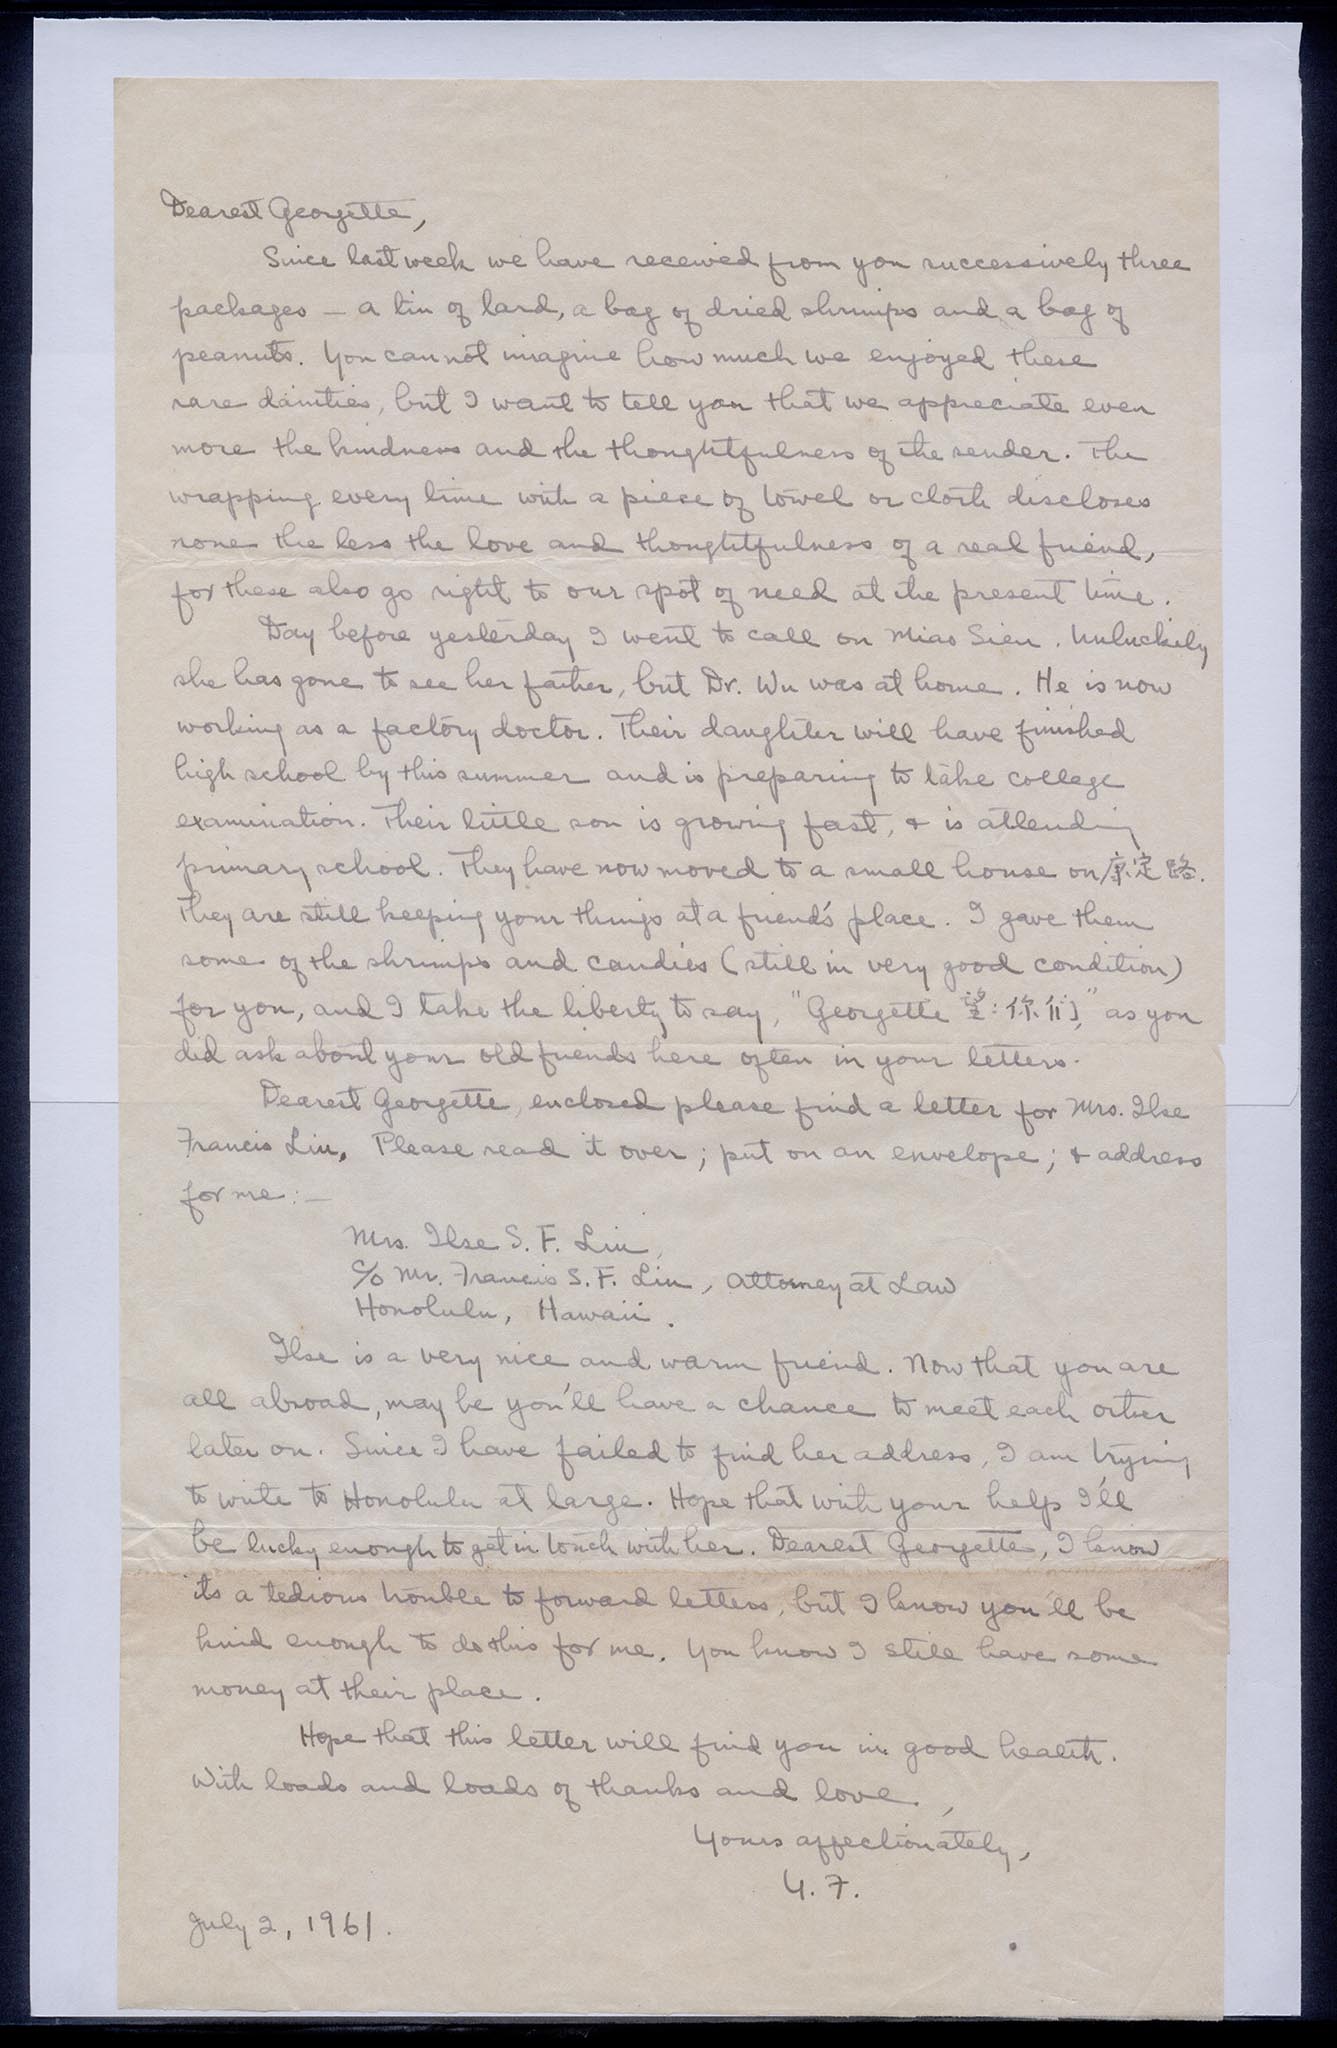 Dearest Georgette,
Since last week we have received from you successively three
packages — a tin of lard, a bag of dried shrimps and a bag of
peanuts. You cannot imagine how much we enjoyed these
rare dainties, but I want to tell you that we appreciate even
more the kindness and the thoughtfulness of the sender. The
wrapping every time with a piece of towel or cloth discloses
none the less the love and thoughtfulness of a real friend,
for these also go right to our spot of need at the present time.
Day before yesterday I went to call on Miao Sien. Unluckily
she has gone to see her father, but Dr. Wu was at home. He is now
working as a factory doctor. Their daughter will have finished
high school by this summer and is preparing to take college
examination. Their little son is growing fast, & is attending
primary school. They have now moved to a small house on 康定路.
They are still keeping your things at a friend's place. I gave them
some of the shrimps and candies (still in very good condition)
for you, and I take the liberty to say, "Georgette 望:你们," as you
did ask about your old friends here often in your letters.
Dearest Georgette, enclosed please find a letter for Mrs. Ilse
Francis Liu. Please read it over; put on an envelope; & address
for me: —
Mrs. Ilse S. F. Liu,
c/o Mr. Francis S. F. Liu, Attorney at Law
Honolulu, Hawaii.
Ilse is a very nice and warm friend. Now that you are
all abroad, may be you'll have a chance to meet each other
later on. Since I have failed to find her address, I am trying
to write to Honolulu at large. Hope that with your help I'll
be lucky enough to get in touch with her. Dearest Georgette, I know
its a tedious trouble to forward letters, but I know you'll be
kind enough to do this for me. You know I still have some
money at their place.
Hope that this letter will find you in good health.
With loads and loads of thanks and love,
Yours affectionately,
Y. F.
July 2, 1961.